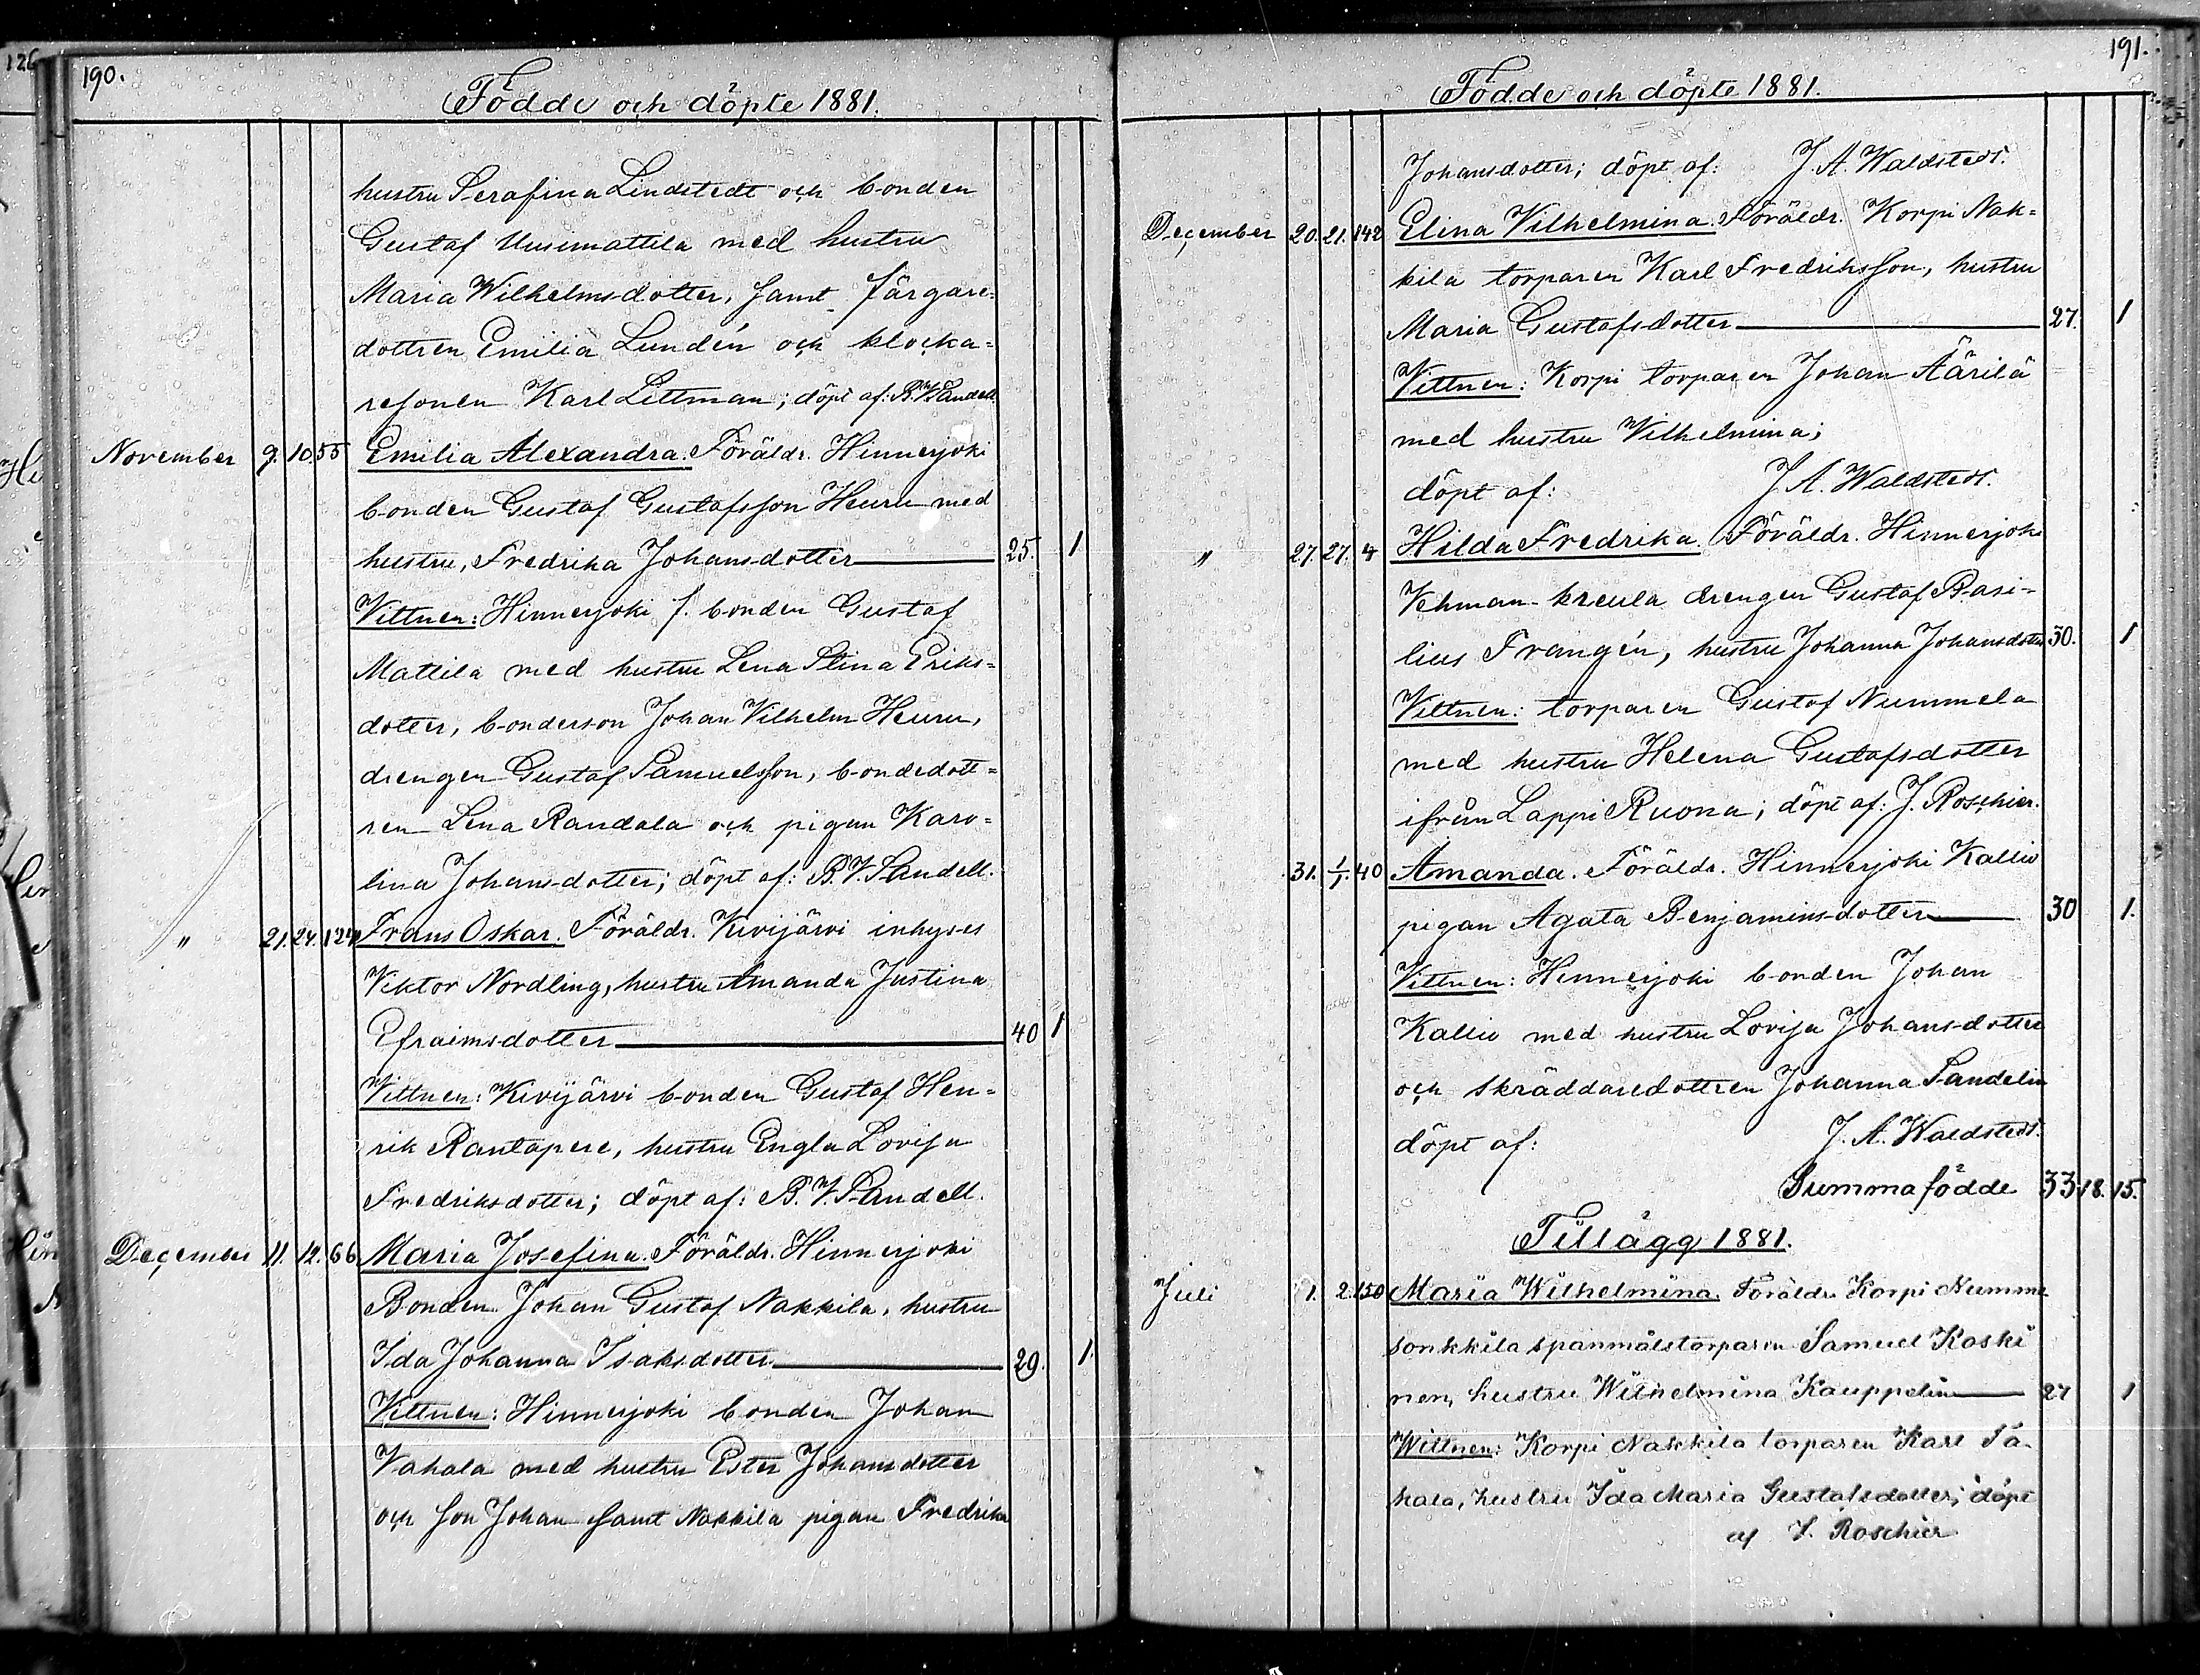 190.
Födde och döpte 1881.
hustru Serafina Lindstedt och bonden
Gustaf Uusimattila med hustru
Maria Wilhelmsdotter, samt färgare-
dottren Emilia Lundén och klocka-
resonen Karl Littman; döpt af: B.V. Sandell
November 9. 10. 55 Emilia Alexandra. Föräldr. Hinnerjoki
bonden Gustaf Gustafsson Heuru med
hustru, Fredrika Johansdotter 25. 1
Vittnen: Hinnerjoki f. bonden Gustaf
Mattila med hustru Lena Stina Eriks-
dotter, bonderson Johan Vilhelm Heuru,
drengen Gustaf Samuelsson, bondedott-
ren Lina Randala och pigan Karo-
lina Johansdotter; döpt af: B.V. Sandell.
" 21. 24. 124 Frans Oskar. Föräldr. Kivijärvi inhyses
Viktor Nordling, hustru Amanda Justina
Efraimsdotter 40 1
Vittnen: Kivijärvi bonden Gustaf Hen-
rik Rantapere, hustru Engla Lovisa
Fredriksdotter; döpt af: B.V. Sandell.
December 11. 12. 66 Maria Josefina. Föräldr. Hinnerjoki
Bonden Johan Gustaf Nakkila, hustru
Ida Johanna Isaksdotter 29. 1.
Vittnen: Hinnerjoki bonden Johan
Vahala med hustru Ester Johansdotter
och son Johan samt Nakkila pigan Fredrika
191.
Födde och döpte 1881.
Johansdotter; döpt af: J. A. Waldstedt.
December 20. 21. 142 Elina Vilhelmina. Föräldr. Korpi Nak-
kila torparen Karl Fredriksson, hustru
Maria Gustafsdotter 27. 1
Vittnen: Korpi torparen Johan Äärilä
med hustru Vilhelmina;
döpt af: J. A. Waldstedt.
" 27. 27. 4 Hilda Fredrika. Föräldr. Hinnerjoki
Vehman-kreula drengen Gustaf Basi-
lius Frangén, hustru Johanna Johansdotter 30. 1
Vittnen: torparen Gustaf Nummela
med hustru Helena Gustafsdotter
ifrån Lappi Ruona; döpt af: J. Roschier.
31. 1/1. 40 Amanda. Föräldr. Hinnerjoki Kallio
pigan Agata Benjaminsdotter 30 1.
Vittnen: Hinnerjoki bonden Johan
Kallio med hustru Lovisa Johansdotter
och skräddaredottren Johanna Sandelin
döpt af: J. A. Waldstedt.
Summa födde 33 18. 15.
Tillägg 1881.
Juli 1. 2. 150 Maria Wilhelmina. Föräldr. Korpi Numme
sonkkila spanmålstorparen Samuel Koski
nen, hustru Wilhelmina Kauppelin 27 1
Wittnen: Korpi Nakkila torparen Karl Sa-
hala, hustru Ida Maria Gustafsdotter; döpt
af J. Roschier